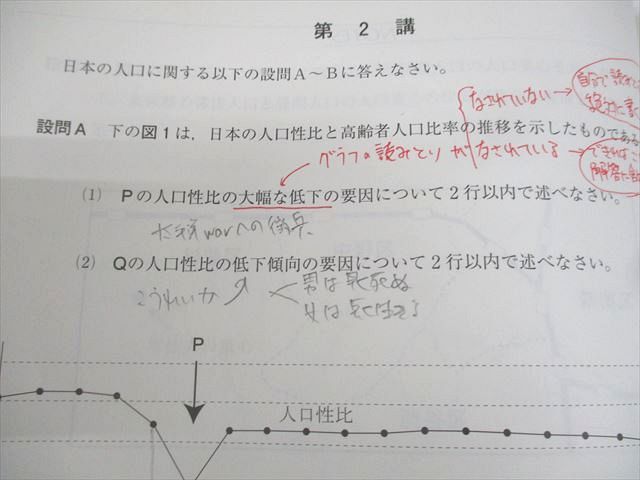 第 2 講
日本の人口に関する以下の設問A～Bに答えなさい。
なされていない→
自分で読み
設問A 下の図1は，日本の人口性比と高齢者人口比率の推移を示したものである
グラフの読みとり が なされている→
できれば
解答に
(1) Pの人口性比の大幅な低下の要因について2行以内で述べなさい。
warへの徴兵
(2) Qの人口性比の低下傾向の要因について2行以内で述べなさい。
こうれいか
男は早死ぬ
女は長生き
P
人口性比